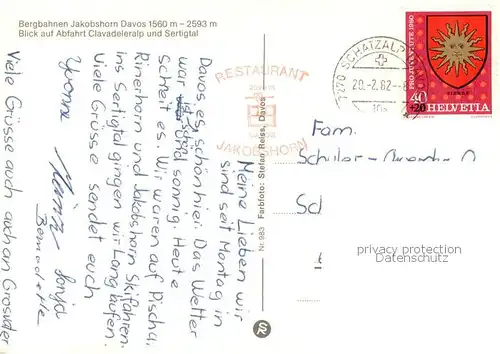 Bergbahnen Jakobshorn Davos 1560 m – 2593 m
Blick auf Abfahrt Clavadeleralp und Sertigtal
Meine Lieben wir
sind seit Montag in
Davos es ist schön hier. Das Wetter
war schön sonnig. Heute
schneit es. Wir waren auf Pischa,
Rinerhorn und Jakobshorn Skifahren.
Ins Sertigtal gingen wir Langlaufen.
Viele Grüsse sendet euch
Yvonne Sonja
Bernadette
Viele Grüsse auch an Grosvater
RESTAURANT
JAKOBSHORN
Nr. 983 Farbfoto: Stefan Reiss, Davos
7270 SCHATZALP
20.-2.82-
PRO JUVENTUTE 1980
40
+20
HELVETIA
Fam.
Schuler-
Sd
privacy protection
Datenschutz